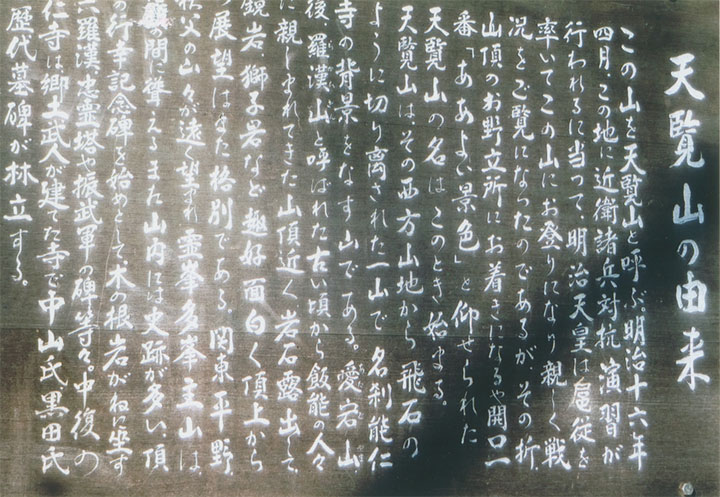 天覧山の由来
この山を天覧山と呼ぶ。明治十六年
四月、この地に近衛諸兵対抗演習が
行われるに当って、明治天皇は扈従を
率いてこの山にお登りになり親しく戦
況をご覧になったのであるが、その折、
山頂のお野立所にお着きになるや開口一
番「ああよい景色」と仰せられた
天覧山の名はこのとき始まる。
天覧山はその西方山地から飛石の
ように切り離された一山で名刹能仁
寺の背景をなす山である。愛宕山
後羅漢山と呼ばれた古い頃から飯能の人々
に親しまれてきた山頂近く岩石露出して、
鏡岩、獅子岩など趣好面白く頂上から
展望はまた格別である。関東平野、
秩父の山々が遠く望まれ霊峯多峯主山は、
の間に聳えるまた山内には史跡が多い、頂
の行幸記念碑を始めとして木の根岩がねに坐す
六羅漢、忠霊塔や振武軍の碑等々。中復の
仁寺は郷土武人が建てた寺で中山氏黒田氏
歴代墓碑が林立する。